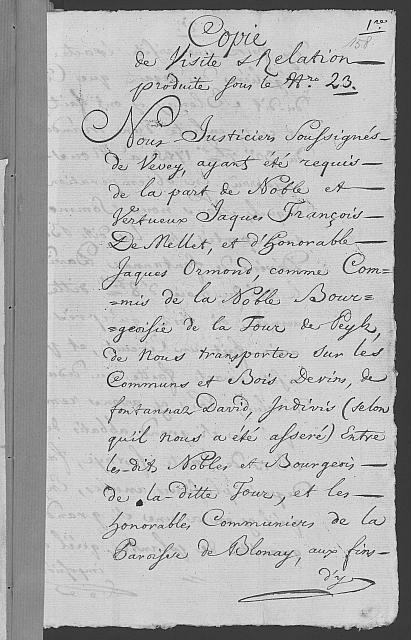 1.re
158
Copie
de Visite & Relation
produite sous le Nro. 23.
Nous Justiciers Soussignés
de Vevey, ayant été requis
de la part de Noble et
Vertueux Jaques François
De Mellet, et d'Honorable
Jaques Ormond comme Com=
=mis de la Noble Bour=
=geoisie de la Tour de Peylz,
de Nous transporter sur les
Communs et Bois Devins, de
fontannaz David, Indivis (selon
qu'il nous a été asseré) Entre
les dit Nobles et Bourgeois
de la ditte Tour, et les
honorables Communiers de la
Paroisse de Blonay, aux fins
d'y